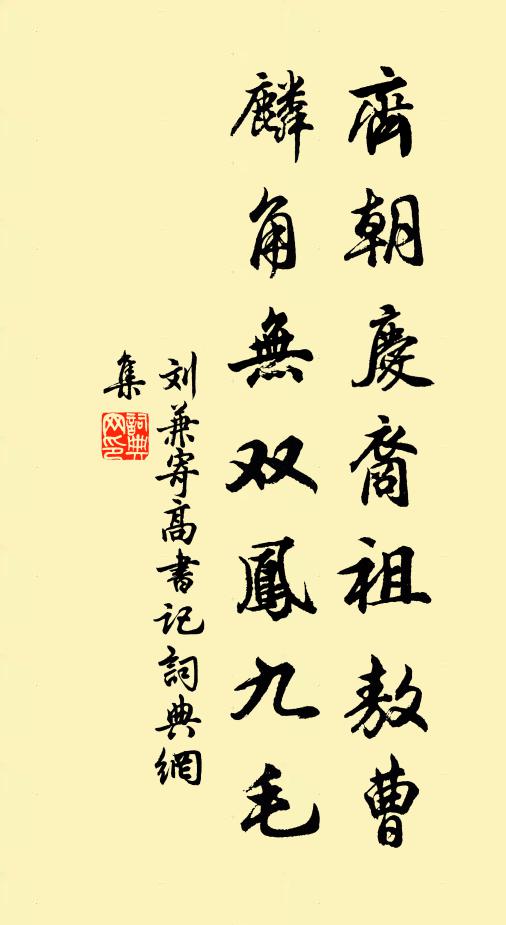 齊朝慶裔祖敖曹
麟角無双鳳九毛
刘兼寄高書记詞典網
集
詞典网印